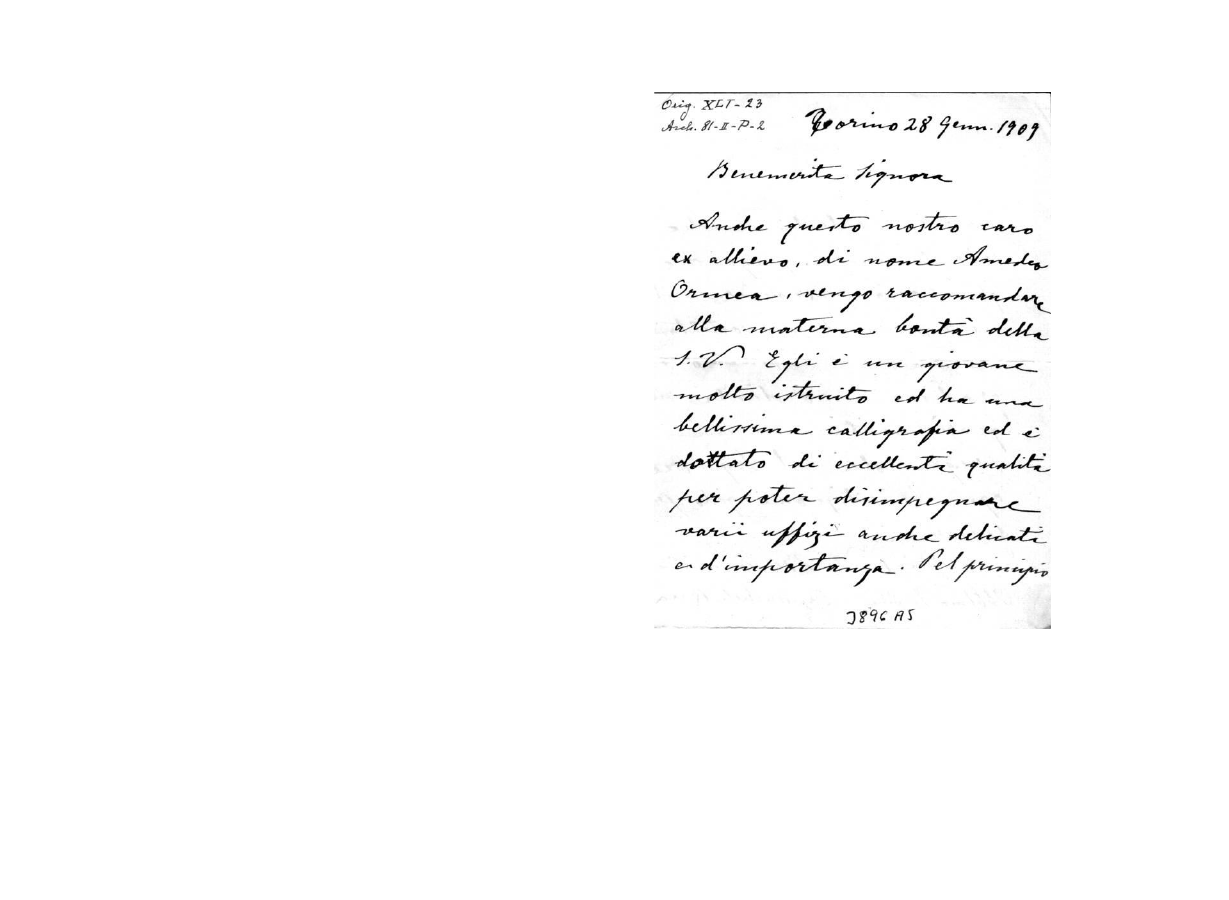 Orig. XLI-23
Arch. 81-II-P-2
Torino 28 Genn. 1909
Benemerita Signora
Anche questo nostro caro
ex allievo, di nome Amedeo
Ormea, vengo raccomandare
alla materna bontà della
S. V. Egli è un giovane
molto istruito ed ha una
bellissima calligrafia ed è
dottato di eccellenti qualità
per poter disimpegnare
varii uffizi anche delicati
e d'importanza. Pel principio
3896 A5